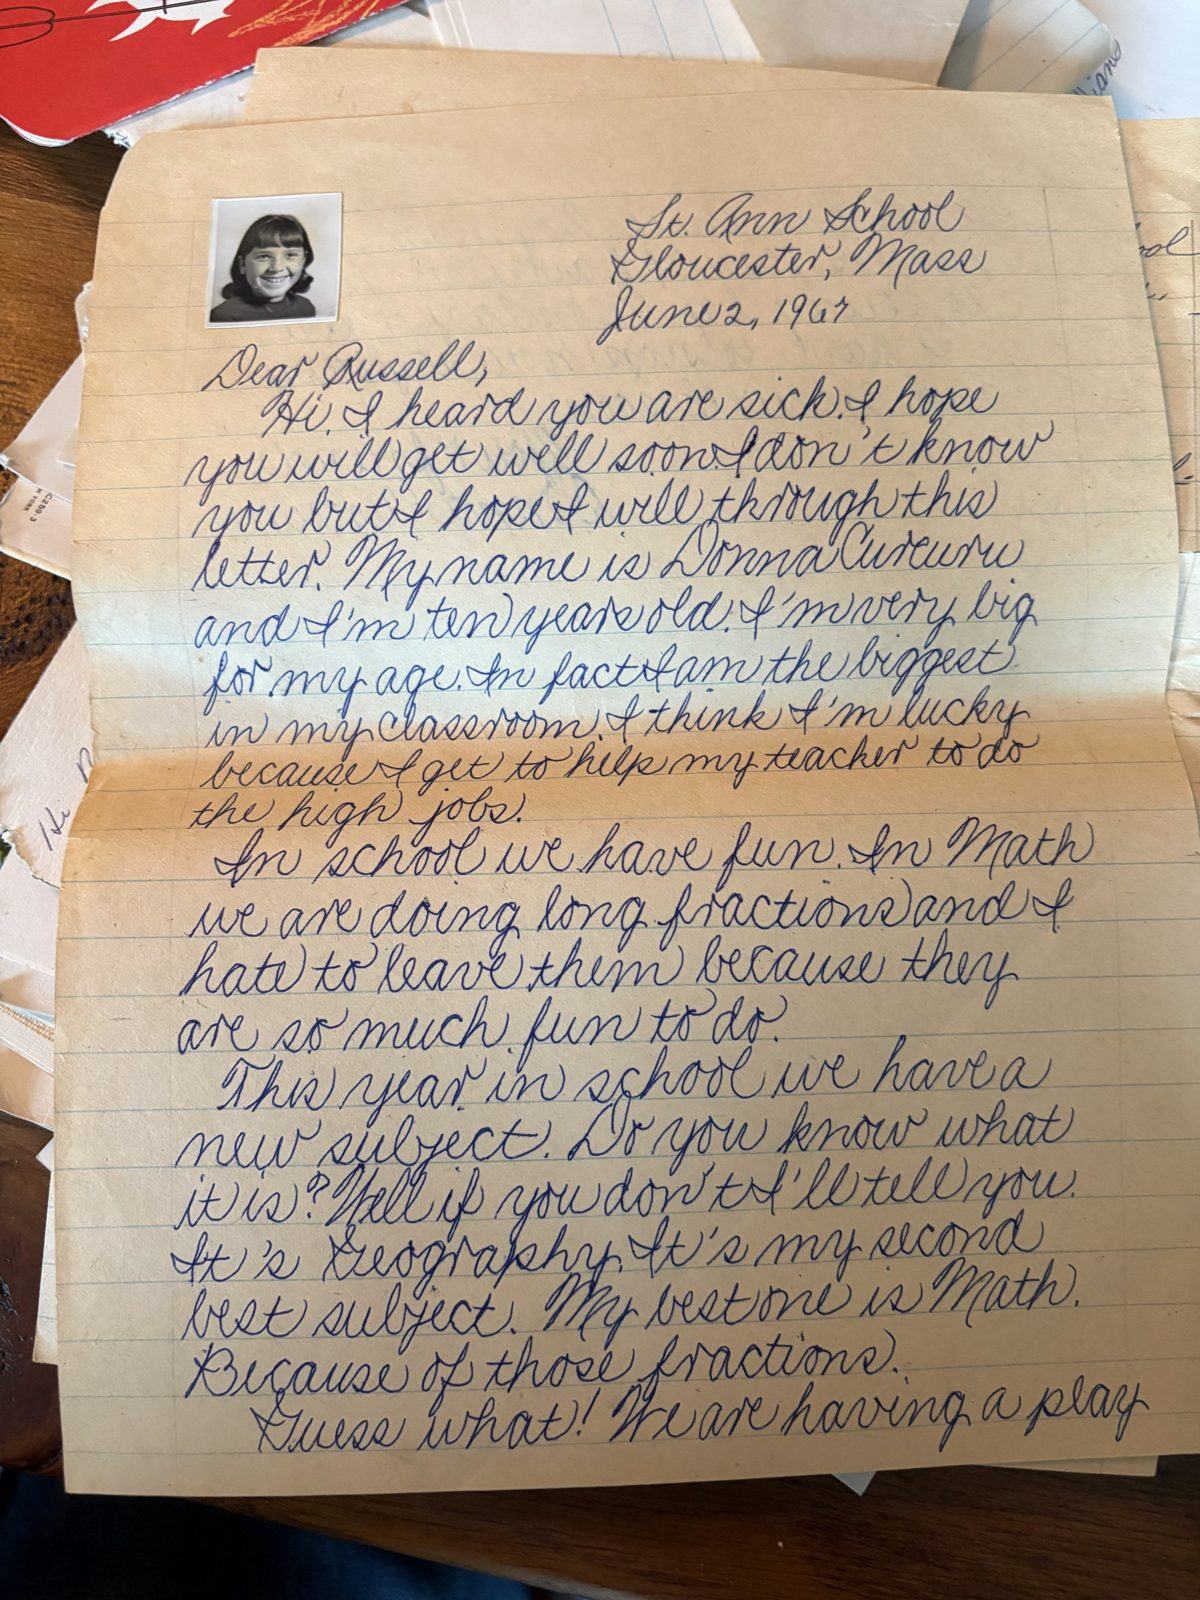 St. Ann School
Gloucester, Mass
June 2, 1967
Dear Russell,
Hi. I heard you are sick. I hope
you will get well soon. I don't know
you but I hope I will through this
letter. My name is Donna Curcuru
and I'm ten years old. I'm very big
for my age. In fact I am the biggest
in my classroom. I think I'm lucky
because I get to help my teacher to do
the high jobs.
In school we have fun. In Math
we are doing long fractions and I
hate to leave them because they
are so much fun to do.
This year in school we have a
new subject. Do you know what
it is? Well if you don't I'll tell you.
It's Geography. It's my second
best subject. My best one is Math.
Because of those fractions.
Guess what! We are having a play